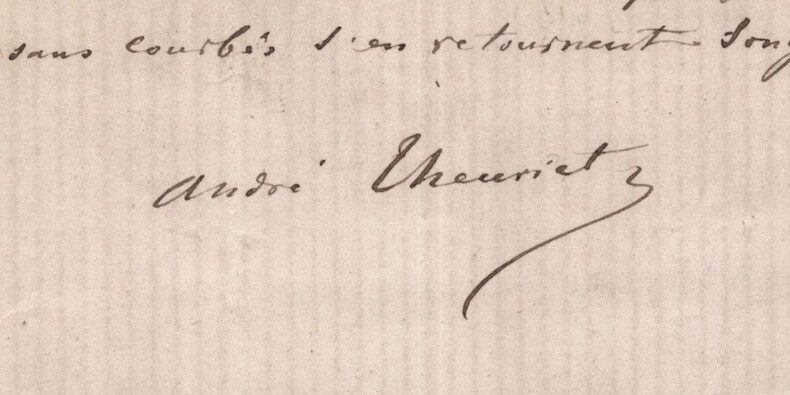 sans courbés s'en retournent song
André Theuriet